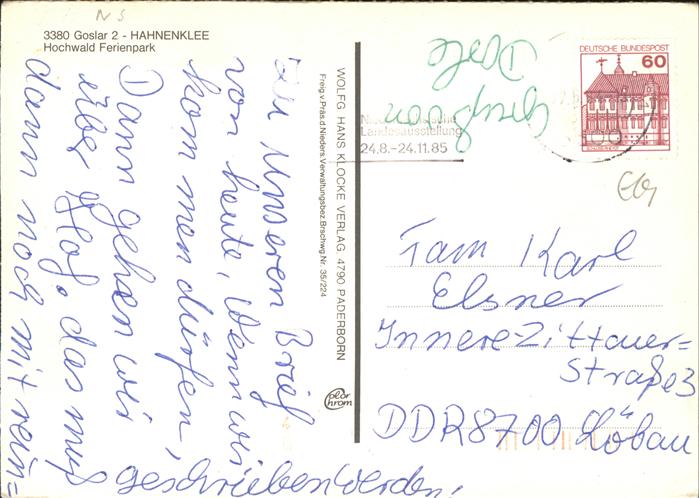 NS
3380 Goslar 2 - HAHNENKLEE
Hochwald Ferienpark
Zu unseren Brief
von heute, Wenn wir
kommen dürfen,
Dann gehen wir
über Hog. das muß
dann noch mit rein=
geschrieben werden!
WOLFG. HANS KLOCKE VERLAG 4790 PADERBORN
Freig.v.Präs.d.Nieders.Verwaltungsbez.Brschwg Nr. 35/224
color chrom
Gruß von
Landesausstellung
24.8.-24.11.85
DEUTSCHE BUNDESPOST
60
Fam Karl
Elsner
Innere-Zittauer=
Straße 3
DDR 8700 Löbau